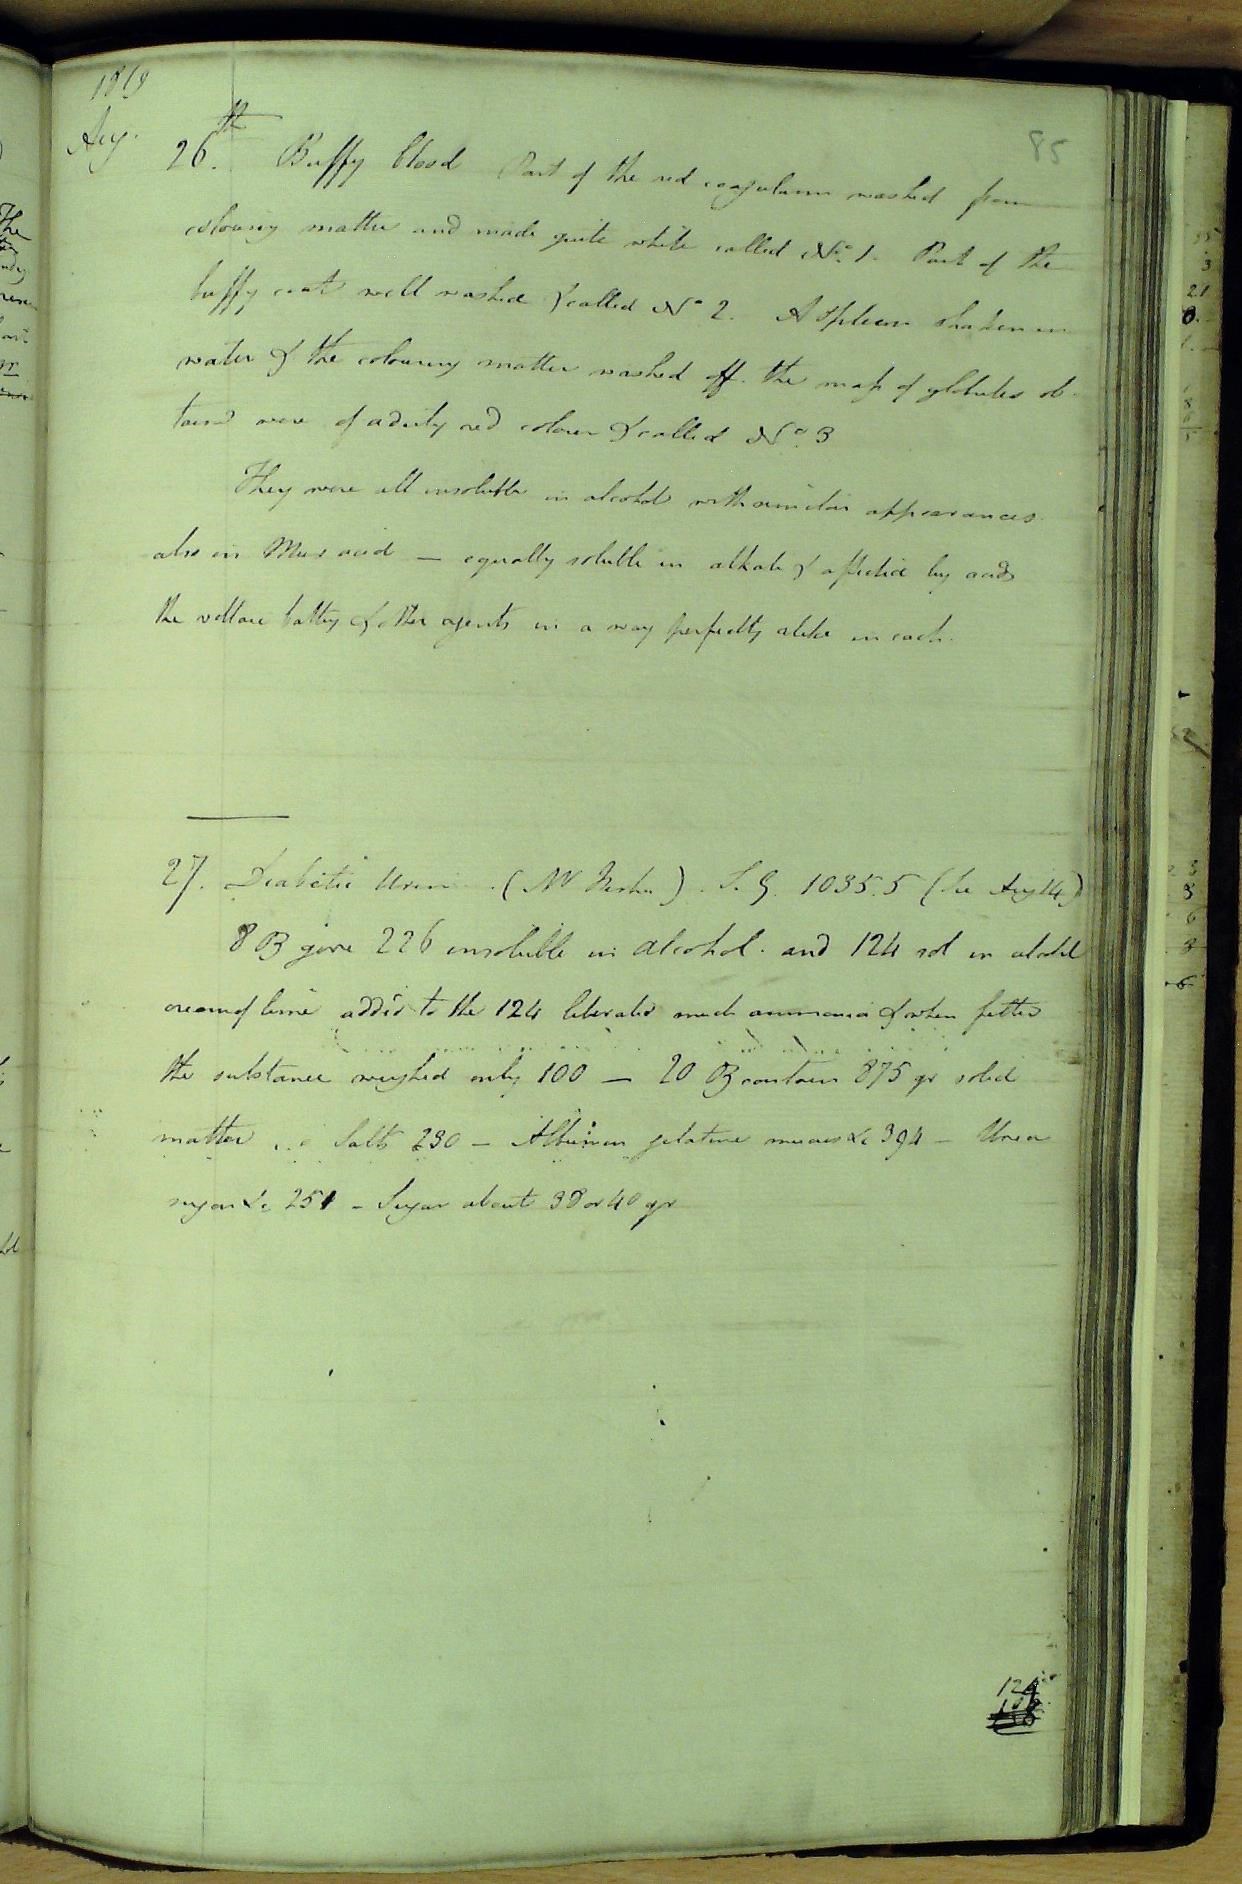 1819
Aug.
85
26th. Buffy blood Part of the red coagulum washed from
colouring matter and made quite white called No. 1. Part of the
buffy coat well washed & called No 2. A Spleen shaken in
water & the colouring matter washed off. the mass of globules ob-
tained were of a dirty red colour & called No. 3
They were all insoluble in alcohol with similar appearances
also in Mur acid — equally soluble in alkali & affected by acids
the voltaic battery & other agents in a way perfectly alike in each.
27. Diabetic Urine (Mr ) S. G. 1035.5 (See Aug 14)
8 ℥ gave 226 insoluble in alcohol. and 124 sol in alcohol
cream of lime added to the 124 liberated much ammonia & when
the substance weighed only 100 — 20 ℥ contain 875 gr solid
matter Salts 230 — Albumen gelatine mucus &c 394 — Urea
sugar &c 251 — Sugar about 38 or 40 gr
124